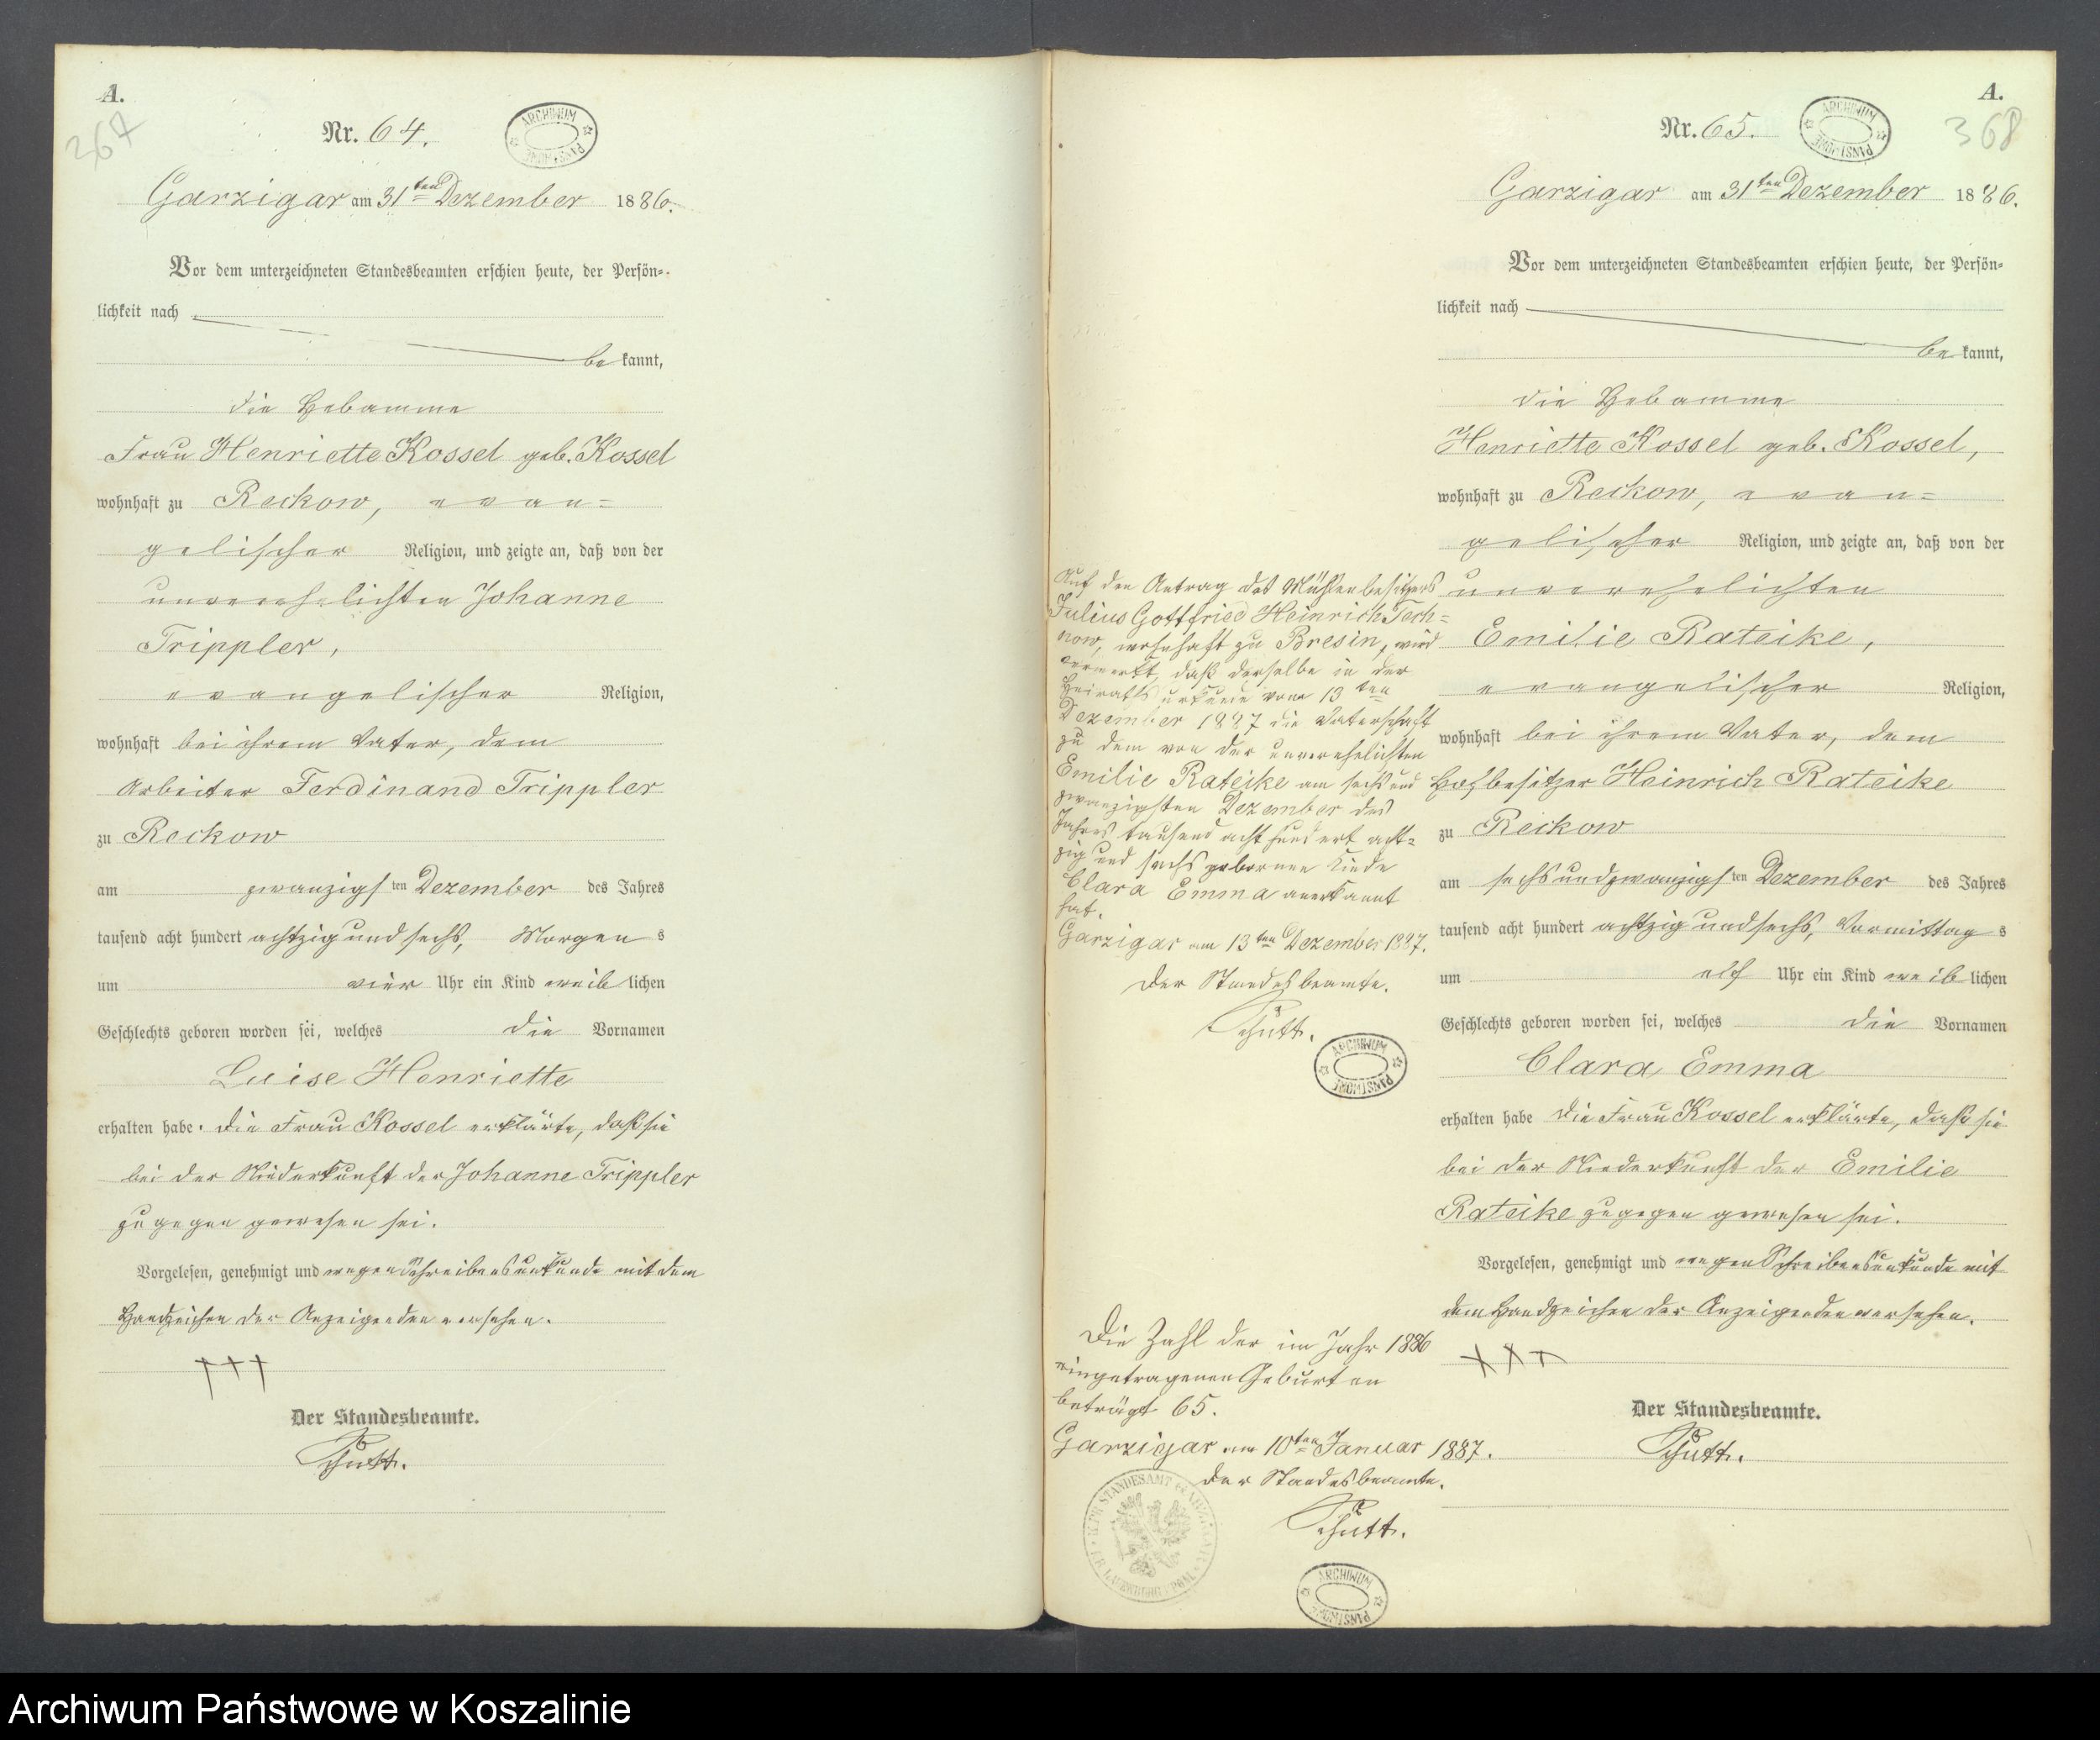 A.
367
Nr. 64.
ARCHIWUM PAŃSTWOWE
Garzigar am 31ten Dezember 1886.
Vor dem unterzeichneten Standesbeamten erschien heute, der Persön-
lichkeit nach
be kannt,
die Hebamme
Frau Henriette Kossel geb. Kossel
wohnhaft zu Reckow, evan=
gelischer Religion, und zeigte an, daß von der
unverehelichten Johanne
Trippler,
evangelischer Religion,
wohnhaft bei ihrem Vater, dem
Arbeiter Ferdinand Trippler
zu Reckow
am zwanzigsten Dezember des Jahres
tausend acht hundert achtzig und sechs, Morgens
um vier Uhr ein Kind weiblichen
Geschlechts geboren worden sei, welches die Vornamen
Luise Henriette
erhalten habe. Die Frau Kossel erklärte, daß sie
bei der Niederkunft der Johanne Trippler
zugegen gewesen sei.
Vorgelesen, genehmigt und wegen Schreibensunkunde mit dem
Handzeichen der Anzeigenden versehen.
+++
Der Standesbeamte.
Schütt.
A.
368
Nr. 65.
ARCHIWUM PAŃSTWOWE
Garzigar am 31ten Dezember 1886.
Vor dem unterzeichneten Standesbeamten erschien heute, der Persön-
lichkeit nach
be kannt,
die Hebamme
Henriette Kossel geb. Kossel,
wohnhaft zu Reckow, evan=
gelischer Religion, und zeigte an, daß von der
unverehelichten
Emilie Rateike,
evangelischer Religion,
wohnhaft bei ihrem Vater, dem
Hofbesitzer Heinrich Rateike
zu Reckow
am sechsundzwanzigsten Dezember des Jahres
tausend acht hundert achtzig und sechs, Vormittags
um elf Uhr ein Kind weiblichen
Geschlechts geboren worden sei, welches die Vornamen
Clara Emma
erhalten habe Die Frau Kossel erklärte, daß sie
bei der Niederkunft der Emilie
Rateike zugegen gewesen sei.
Vorgelesen, genehmigt und wegen Schreibensunkunde mit
dem Handzeichen der Anzeigenden versehen.
+++
Der Standesbeamte.
Schütt.
Auf den Antrag des Mühlenbesitzers
Julius Gottfried Heinrich Tech=
now, wohnhaft zu Bresin, wird
vermerkt, daß derselbe in der
Heirathsurkunde vom 13ten
Dezember 1887 die Vaterschaft
zu dem von der unverehelichten
Emilie Rateike am sechsund
zwanzigsten Dezember des
Jahres tausend acht hundert acht=
zig und sechs geborenen Kinde
Clara Emma anerkannt
hat.
Garzigar am 13ten Dezember 1887.
Der Standesbeamte.
Schütt.
ARCHIWUM PAŃSTWOWE
Die Zahl der im Jahr 1886
eingetragenen Geburten
beträgt 65.
Garzigar am 10ten Januar 1887.
Der Standesbeamte.
Schütt.
ARCHIWUM PAŃSTWOWE
Archiwum Państwowe w Koszalinie